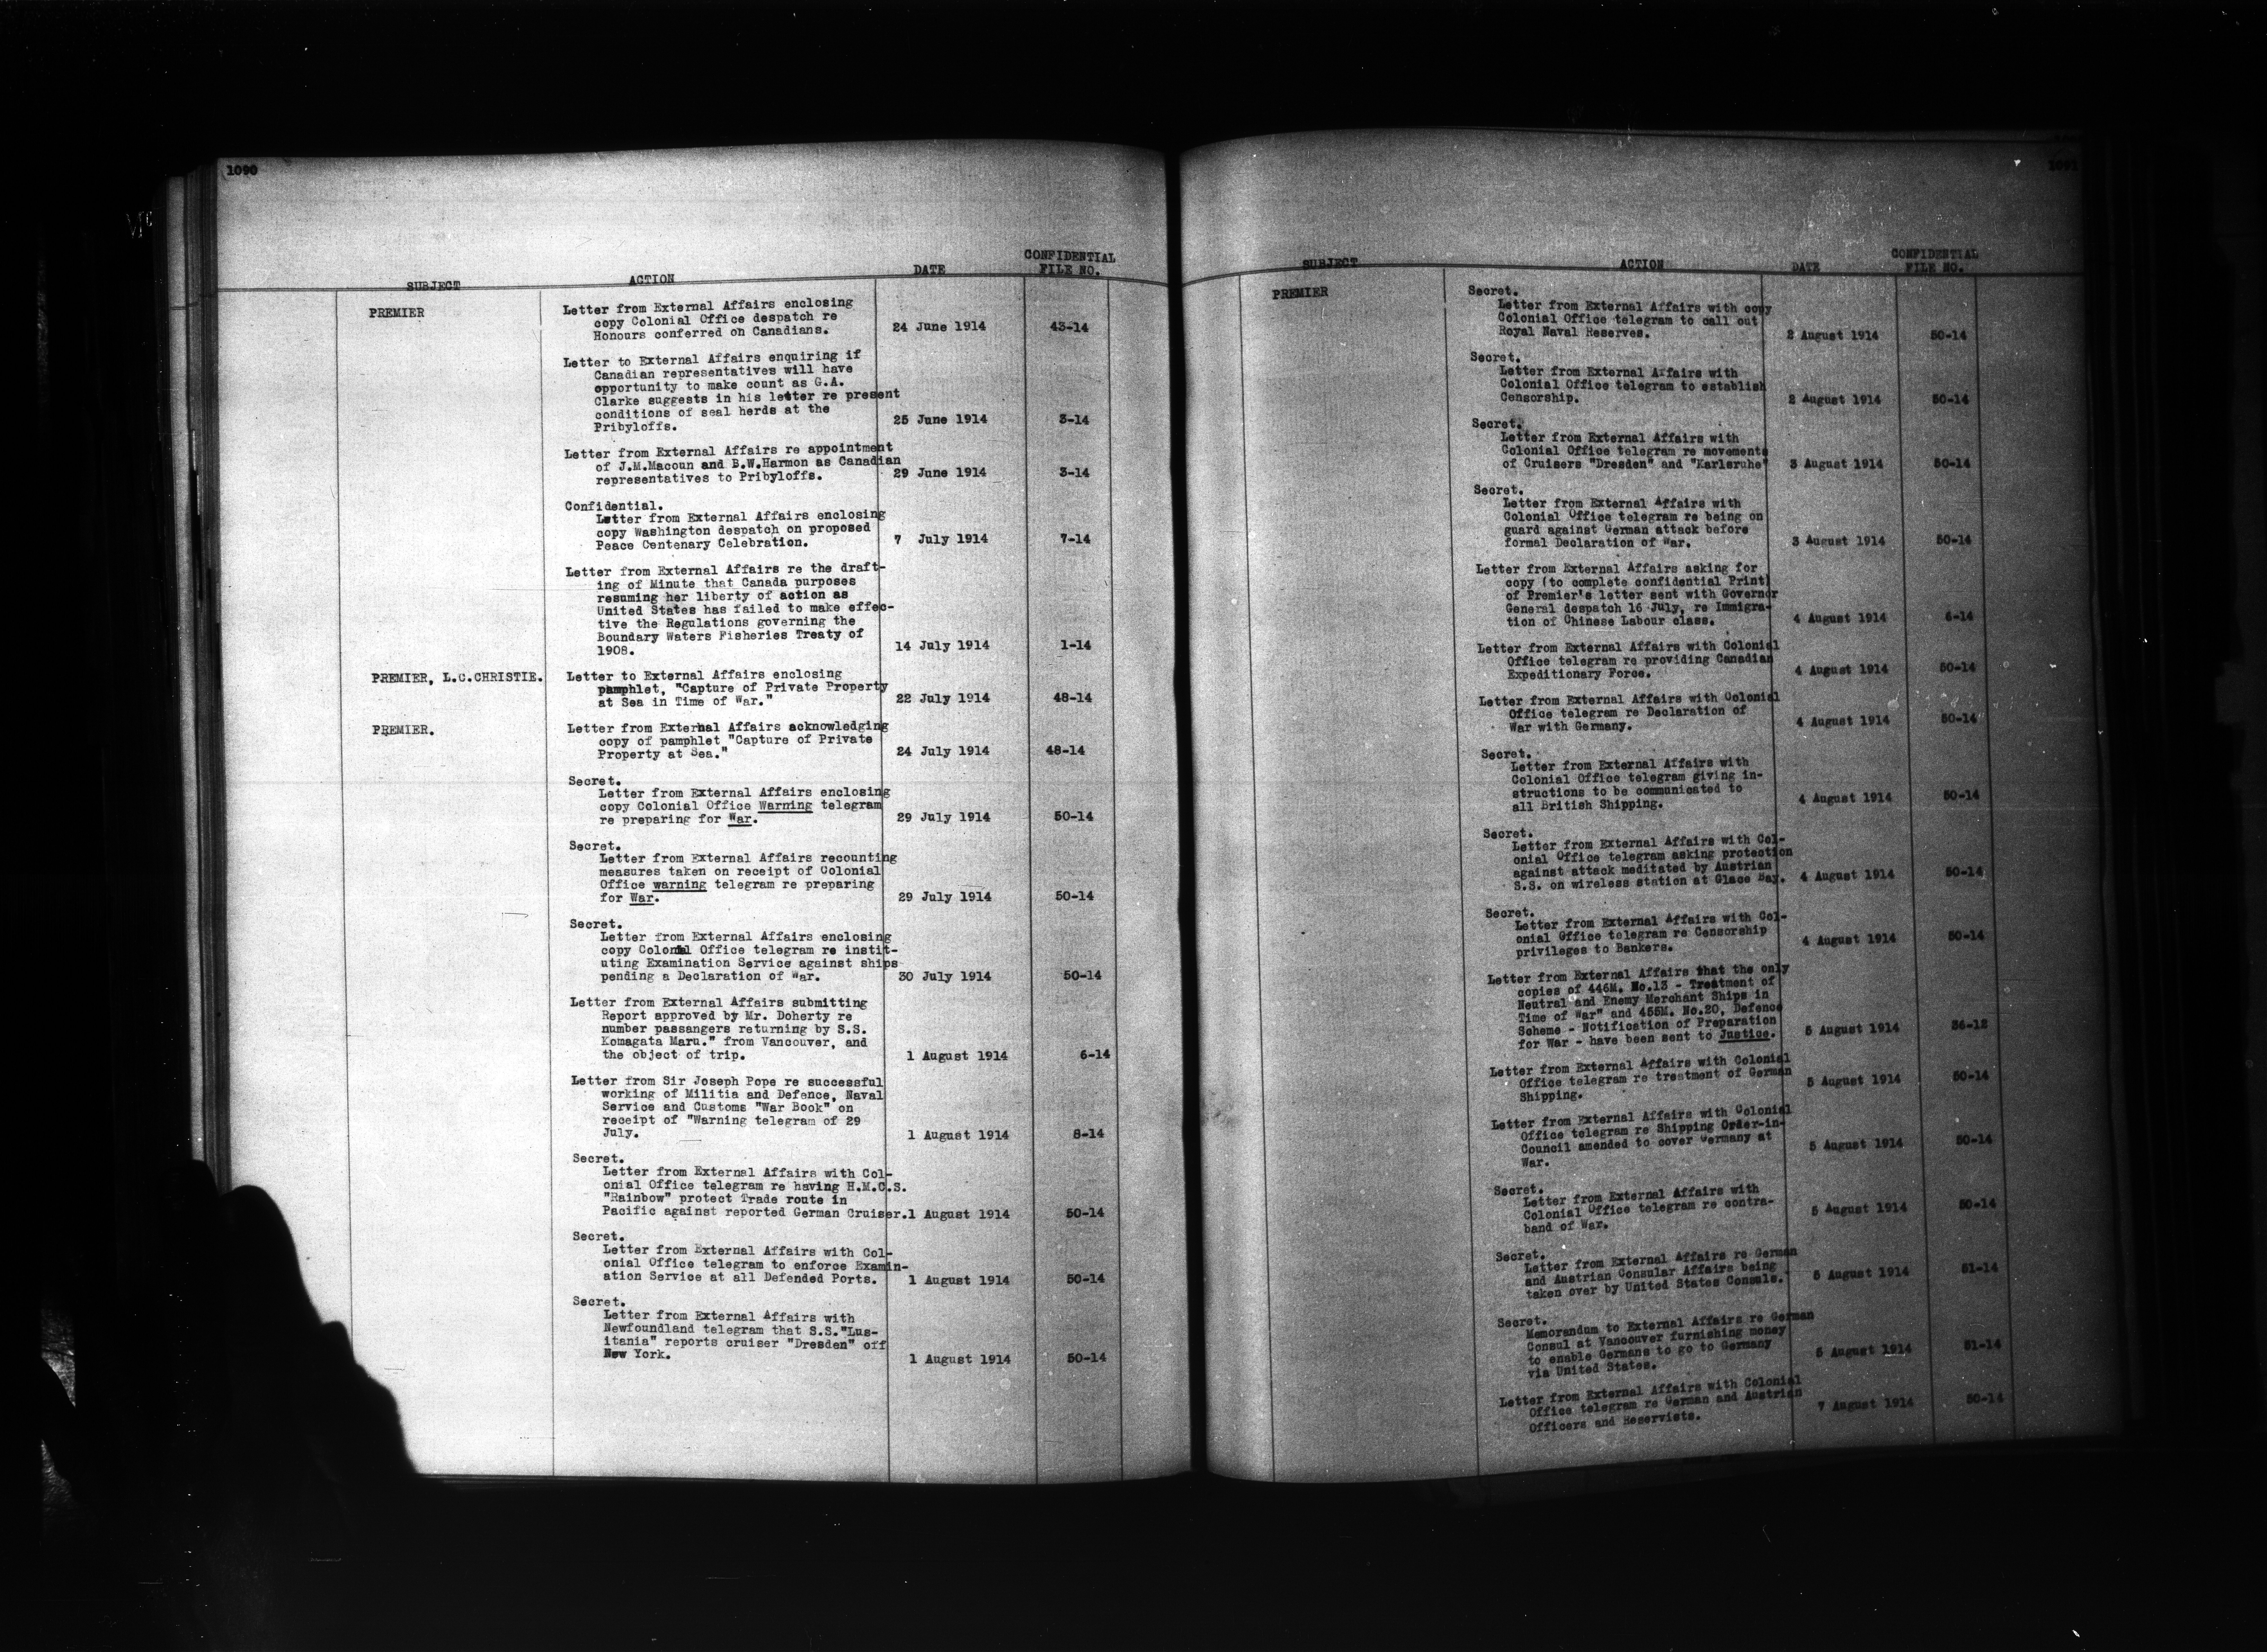 1090
SUBJECT ACTION DATE CONFIDENTIAL FILE NO.
PREMIER Letter from External Affairs enclosing
copy Colonial Office despatch re
Honours conferred on Canadians. 24 June 1914 43-14
Letter to External Affairs enquiring if
Canadian representatives will have
opportunity to make count as G.A.
Clarke suggests in his letter re present
conditions of seal herds at the
Pribyloffs. 25 June 1914 3-14
Letter from External Affairs re appointment
of J.M.Macoun and B.W.Harmon as Canadian
representatives to Pribyloffs. 29 June 1914 3-14
Confidential.
Letter from External Affairs enclosing
copy Washington despatch on proposed
Peace Centenary Celebration. 7 July 1914 7-14
Letter from External Affairs re the draft-
ing of Minute that Canada purposes
resuming her liberty of action as
United States has failed to make effec-
tive the Regulations governing the
Boundary Waters Fisheries Treaty of
1908. 14 July 1914 1-14
PREMIER, L.C.CHRISTIE. Letter to External Affairs enclosing
pamphlet, "Capture of Private Property
at Sea in Time of War." 22 July 1914 48-14
PREMIER. Letter from External Affairs acknowledging
copy of pamphlet "Capture of Private
Property at Sea." 24 July 1914 48-14
Secret.
Letter from External Affairs enclosing
copy Colonial Office Warning telegram
re preparing for War. 29 July 1914 50-14
Secret.
Letter from External Affairs recounting
measures taken on receipt of Colonial
Office warning telegram re preparing
for War. 29 July 1914 50-14
Secret.
Letter from External Affairs enclosing
copy Colonial Office telegram re instit-
uting Examination Service against ships
pending a Declaration of War. 30 July 1914 50-14
Letter from External Affairs submitting
Report approved by Mr. Doherty re
number passangers returning by S.S.
Komagata Maru." from Vancouver, and
the object of trip. 1 August 1914 6-14
Letter from Sir Joseph Pope re successful
working of Militia and Defence, Naval
Service and Customs "War Book" on
receipt of "Warning telegram of 29
July. 1 August 1914 8-14
Secret.
Letter from External Affairs with Col-
onial Office telegram re having H.M.C.S.
"Rainbow" protect Trade route in
Pacific against reported German Cruiser. 1 August 1914 50-14
Secret.
Letter from External Affairs with Col-
onial Office telegram to enforce Examin-
ation Service at all Defended Ports. 1 August 1914 50-14
Secret.
Letter from External Affairs with
Newfoundland telegram that S.S."Lus-
itania" reports cruiser "Dresden" off
New York. 1 August 1914 50-14
1091
SUBJECT ACTION DATE CONFIDENTIAL FILE NO.
PREMIER Secret.
Letter from External Affairs with copy
Colonial Office telegram to call out
Royal Naval Reserves. 2 August 1914 50-14
Secret.
Letter from External Affairs with
Colonial Office telegram to establish
Censorship. 2 August 1914 50-14
Secret.
Letter from External Affairs with
Colonial Office telegram re movements
of Cruisers "Dresden" and "Karlsruhe" 3 August 1914 50-14
Secret.
Letter from External Affairs with
Colonial Office telegram re being on
guard against German attack before
formal Declaration of War. 3 August 1914 50-14
Letter from External Affairs asking for
copy (to complete confidential Print)
of Premier's letter sent with Governor
General despatch 16 July, re Immigra-
tion of Chinese Labour class. 4 August 1914 6-14
Letter from External Affairs with Colonial
Office telegram re providing Canadian
Expeditionary Force. 4 August 1914 50-14
Letter from External Affairs with Colonial
Office telegram re Declaration of
War with Germany. 4 August 1914 50-14
Secret.
Letter from External Affairs with
Colonial Office telegram giving in-
structions to be communicated to
all British Shipping. 4 August 1914 50-14
Secret.
Letter from External Affairs with Col-
onial Office telegram asking protection
against attack meditated by Austrian
S.S. on wireless station at Glace Bay. 4 August 1914 50-14
Secret.
Letter from External Affairs with Col-
onial Office telegram re Censorship
privileges to Bankers. 4 August 1914 50-14
Letter from External Affairs that the only
copies of 446M. No.13 - Treatment of
Neutral and Enemy Merchant Ships in
Time of War" and 455M. No.20, Defence
Scheme - Notification of Preparation
for War - have been sent to Justice. 5 August 1914 36-12
Letter from External Affairs with Colonial
Office telegram re treatment of German
Shipping. 5 August 1914 50-14
Letter from External Affairs with Colonial
Office telegram re Shipping Order-in-
Council amended to cover Germany at
War. 5 August 1914 50-14
Secret.
Letter from External Affairs with
Colonial Office telegram re contra-
band of War. 5 August 1914 50-14
Secret.
Letter from External Affairs re German
and Austrian Consular Affairs being
taken over by United States Consuls. 5 August 1914 51-14
Secret.
Memorandum to External Affairs re German
Consul at Vancouver furnishing money
to enable Germans to go to Germany
via United States. 5 August 1914 51-14
Letter from External Affairs with Colonial
Office telegram re German and Austrian
Officers and Reservists. 7 August 1914 50-14